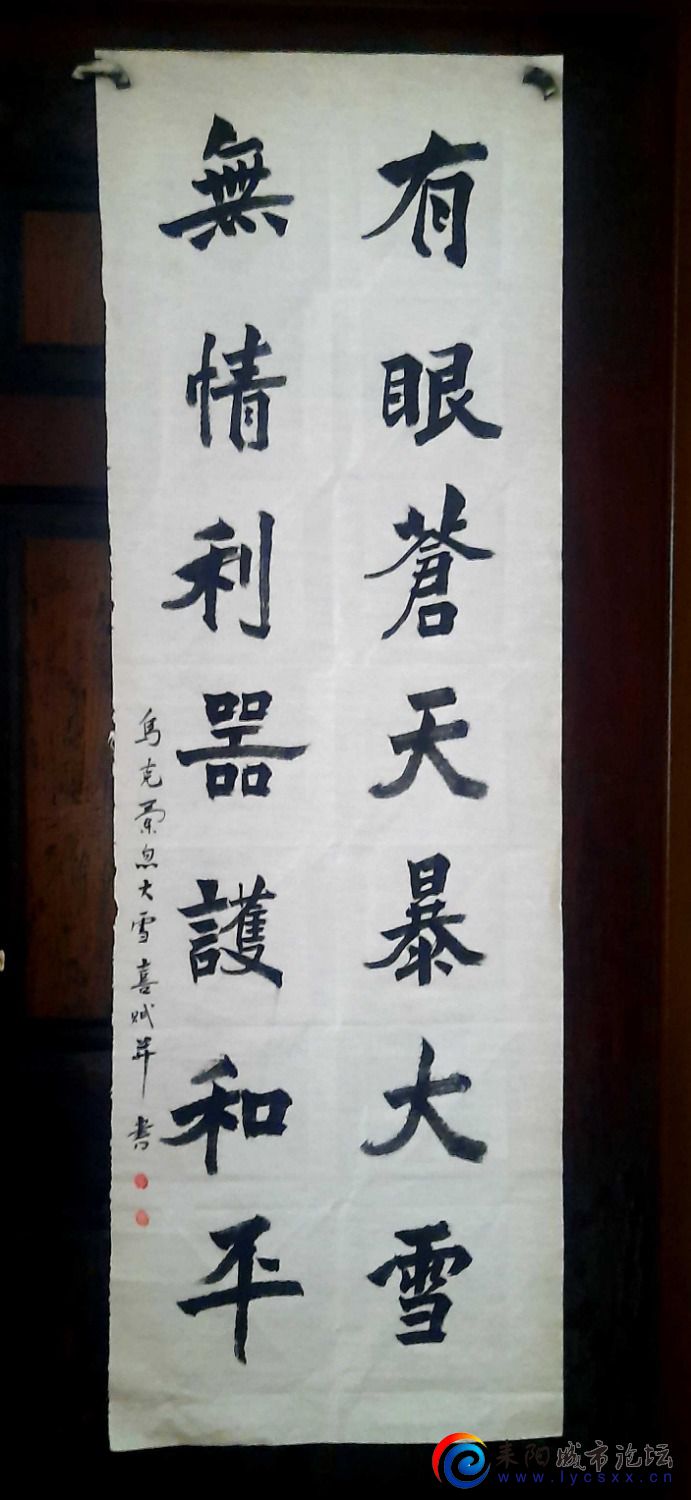 有眼蒼天暴大雪
無情利器護和平
烏克蘭忽大雪喜賦並書
耒阳城市论坛
www.lycsxx.cn